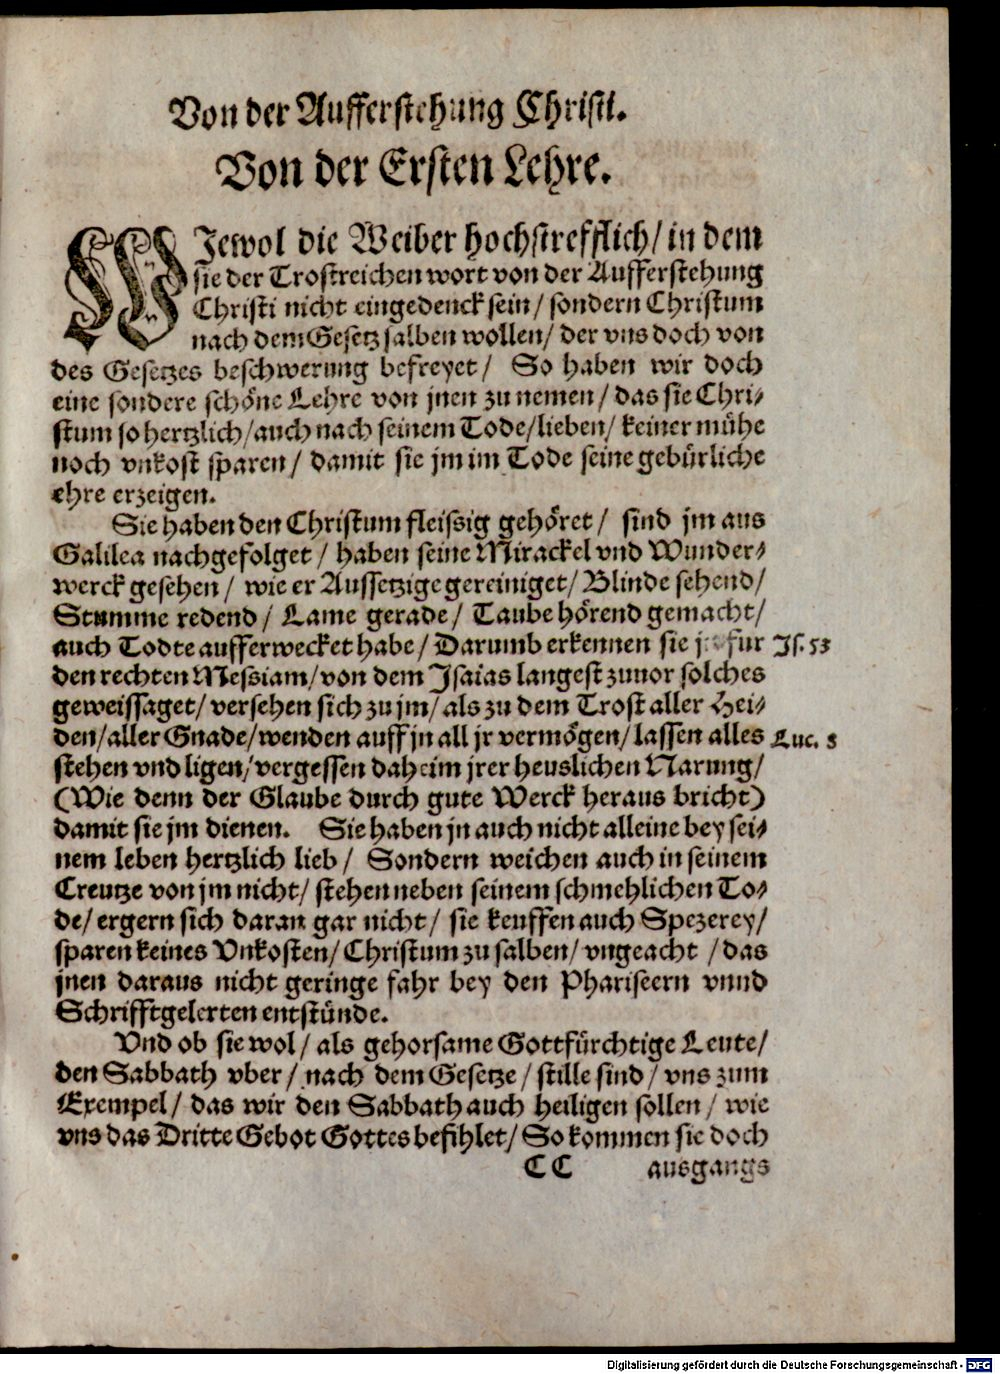 Von der Aufferstehung Christi.
Von der Ersten Lehre.
WJewol die Weiber hochstrefflich/ in dem
sie der Trostreichen wort von der Aufferstehung
Christi nicht eingedenck sein/ sondern Christum
nach dem Gesetz salben wollen/ der vns doch von
des Gesetzes beschwerung befreyet/ So haben wir doch
eine sondere schöne Lehre von jnen zu nemen/ das sie Chri-
stum so hertzlich/ auch nach seinem Tode/ lieben/ keiner mühe
noch vnkost sparen/ damit sie jm im Tode seine gebürliche
ehre erzeigen.
Sie haben den Christum fleissig gehöret/ sind jm aus
Galilea nachgefolget/ haben seine Mirackel vnd Wunder-
werck gesehen/ wie er Aussetzige gereiniget/ Blinde sehend/
Stumme redend/ Lame gerade/ Taube hörend gemacht/
auch Todte aufferwecket habe/ Darumb erkennen sie fur Js. 53
den rechten Messiam/ von dem Jsaias langest zuuor solches
geweissaget/ versehen sich zu jm/ als zu dem Trost aller Hei-
den/ aller Gnade/ wenden auff jn all jr vermögen/ lassen alles Luc. 8
stehen vnd ligen/ vergessen daheim jrer heuslichen Narung/
(Wie denn der Glaube durch gute Werck heraus bricht)
damit sie jm dienen. Sie haben jn auch nicht alleine bey sei-
nem leben hertzlich lieb/ Sondern weichen auch in seinem
Creutze von jm nicht/ stehen neben seinem schmehlichen To-
de/ ergern sich daran gar nicht/ sie keuffen auch Spezerey/
sparen keines Vnkosten/ Christum zu salben/ vngeacht / das
jnen daraus nicht geringe fahr bey den Phariseern vnnd
Schrifftgelerten entstünde.
Vnd ob sie wol/ als gehorsame Gottfürchtige Leute/
den Sabbath vber/ nach dem Gesetze/ stille sind/ vns zum
Exempel/ das wir den Sabbath auch heiligen sollen/ wie
vns das Dritte Gebot Gottes befihlet/ So kommen sie doch
CC ausgangs
Digitalisierung gefördert durch die Deutsche Forschungsgemeinschaft - DFG